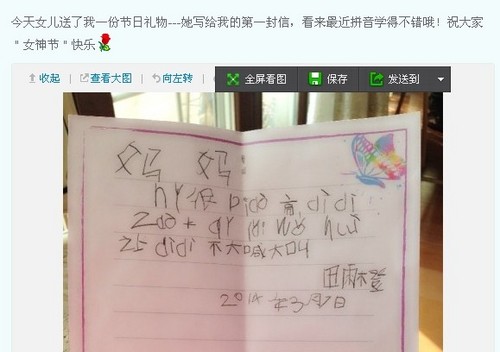 今天女儿送了我一份节日礼物---她写给我的第一封信，看来最近拼音学得不错哦！祝大家
＂女神节＂快乐
收起 | 查看大图 | 向左转 全屏看图 保存 发送到
妈 妈
nǐ 很 piao 亮 didi
Zao + qi wo hui
didi 不大喊大叫
田雨登
2014年3月7日